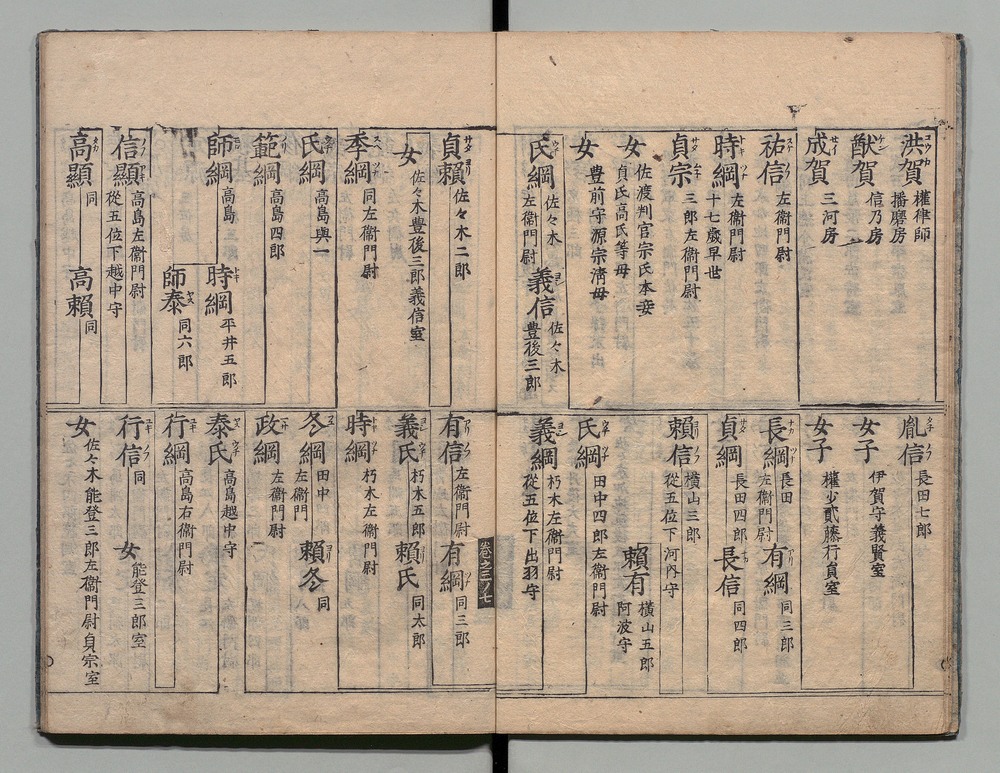 洪賀 權律師 播磨房
猷賀 信乃房
成賀 三河房
祐信 左衞門尉
時綱 左衞門尉 十七歲早世
貞宗 三郎左衞門尉
女 佐渡判官宗氏本妾 貞氏高氏等母
女 豊前守源宗淸母
氏綱 佐々木左衞門尉
義信 佐々木豊後三郎
胤信 長田七郎
女子 伊賀守義賢室
女子 權少貳藤行員室
長綱 長田左衞門尉
有綱 同三郎
貞綱 長田四郎
長信 同四郎
賴信 横山三郎 從五位下河內守
賴有 横山五郎 阿波守
氏綱 田中四郎左衞門尉
義綱 朽木左衞門尉 從五位下出羽守
卷之三ノ七
貞賴 佐々木二郎
女 佐々木豊後三郎義信室
季綱 同左衞門尉
氏綱 高島與一
範綱 高島四郎
師綱 高島
時綱 平井五郎
師泰 同六郎
信顯 高島左衞門尉 從五位下越中守
高顯 同
高賴 同
有信 左衞門尉
有綱 同三郎
義氏 朽木五郎
賴氏 同太郎
時綱 朽木左衞門尉
冬綱 田中左衞門
賴冬 同
政綱 左衞門尉
泰氏 高島越中守
行綱 高島右衞門尉
行信 同
女 能登三郎室
女 佐々木能登三郎左衞門尉貞宗室